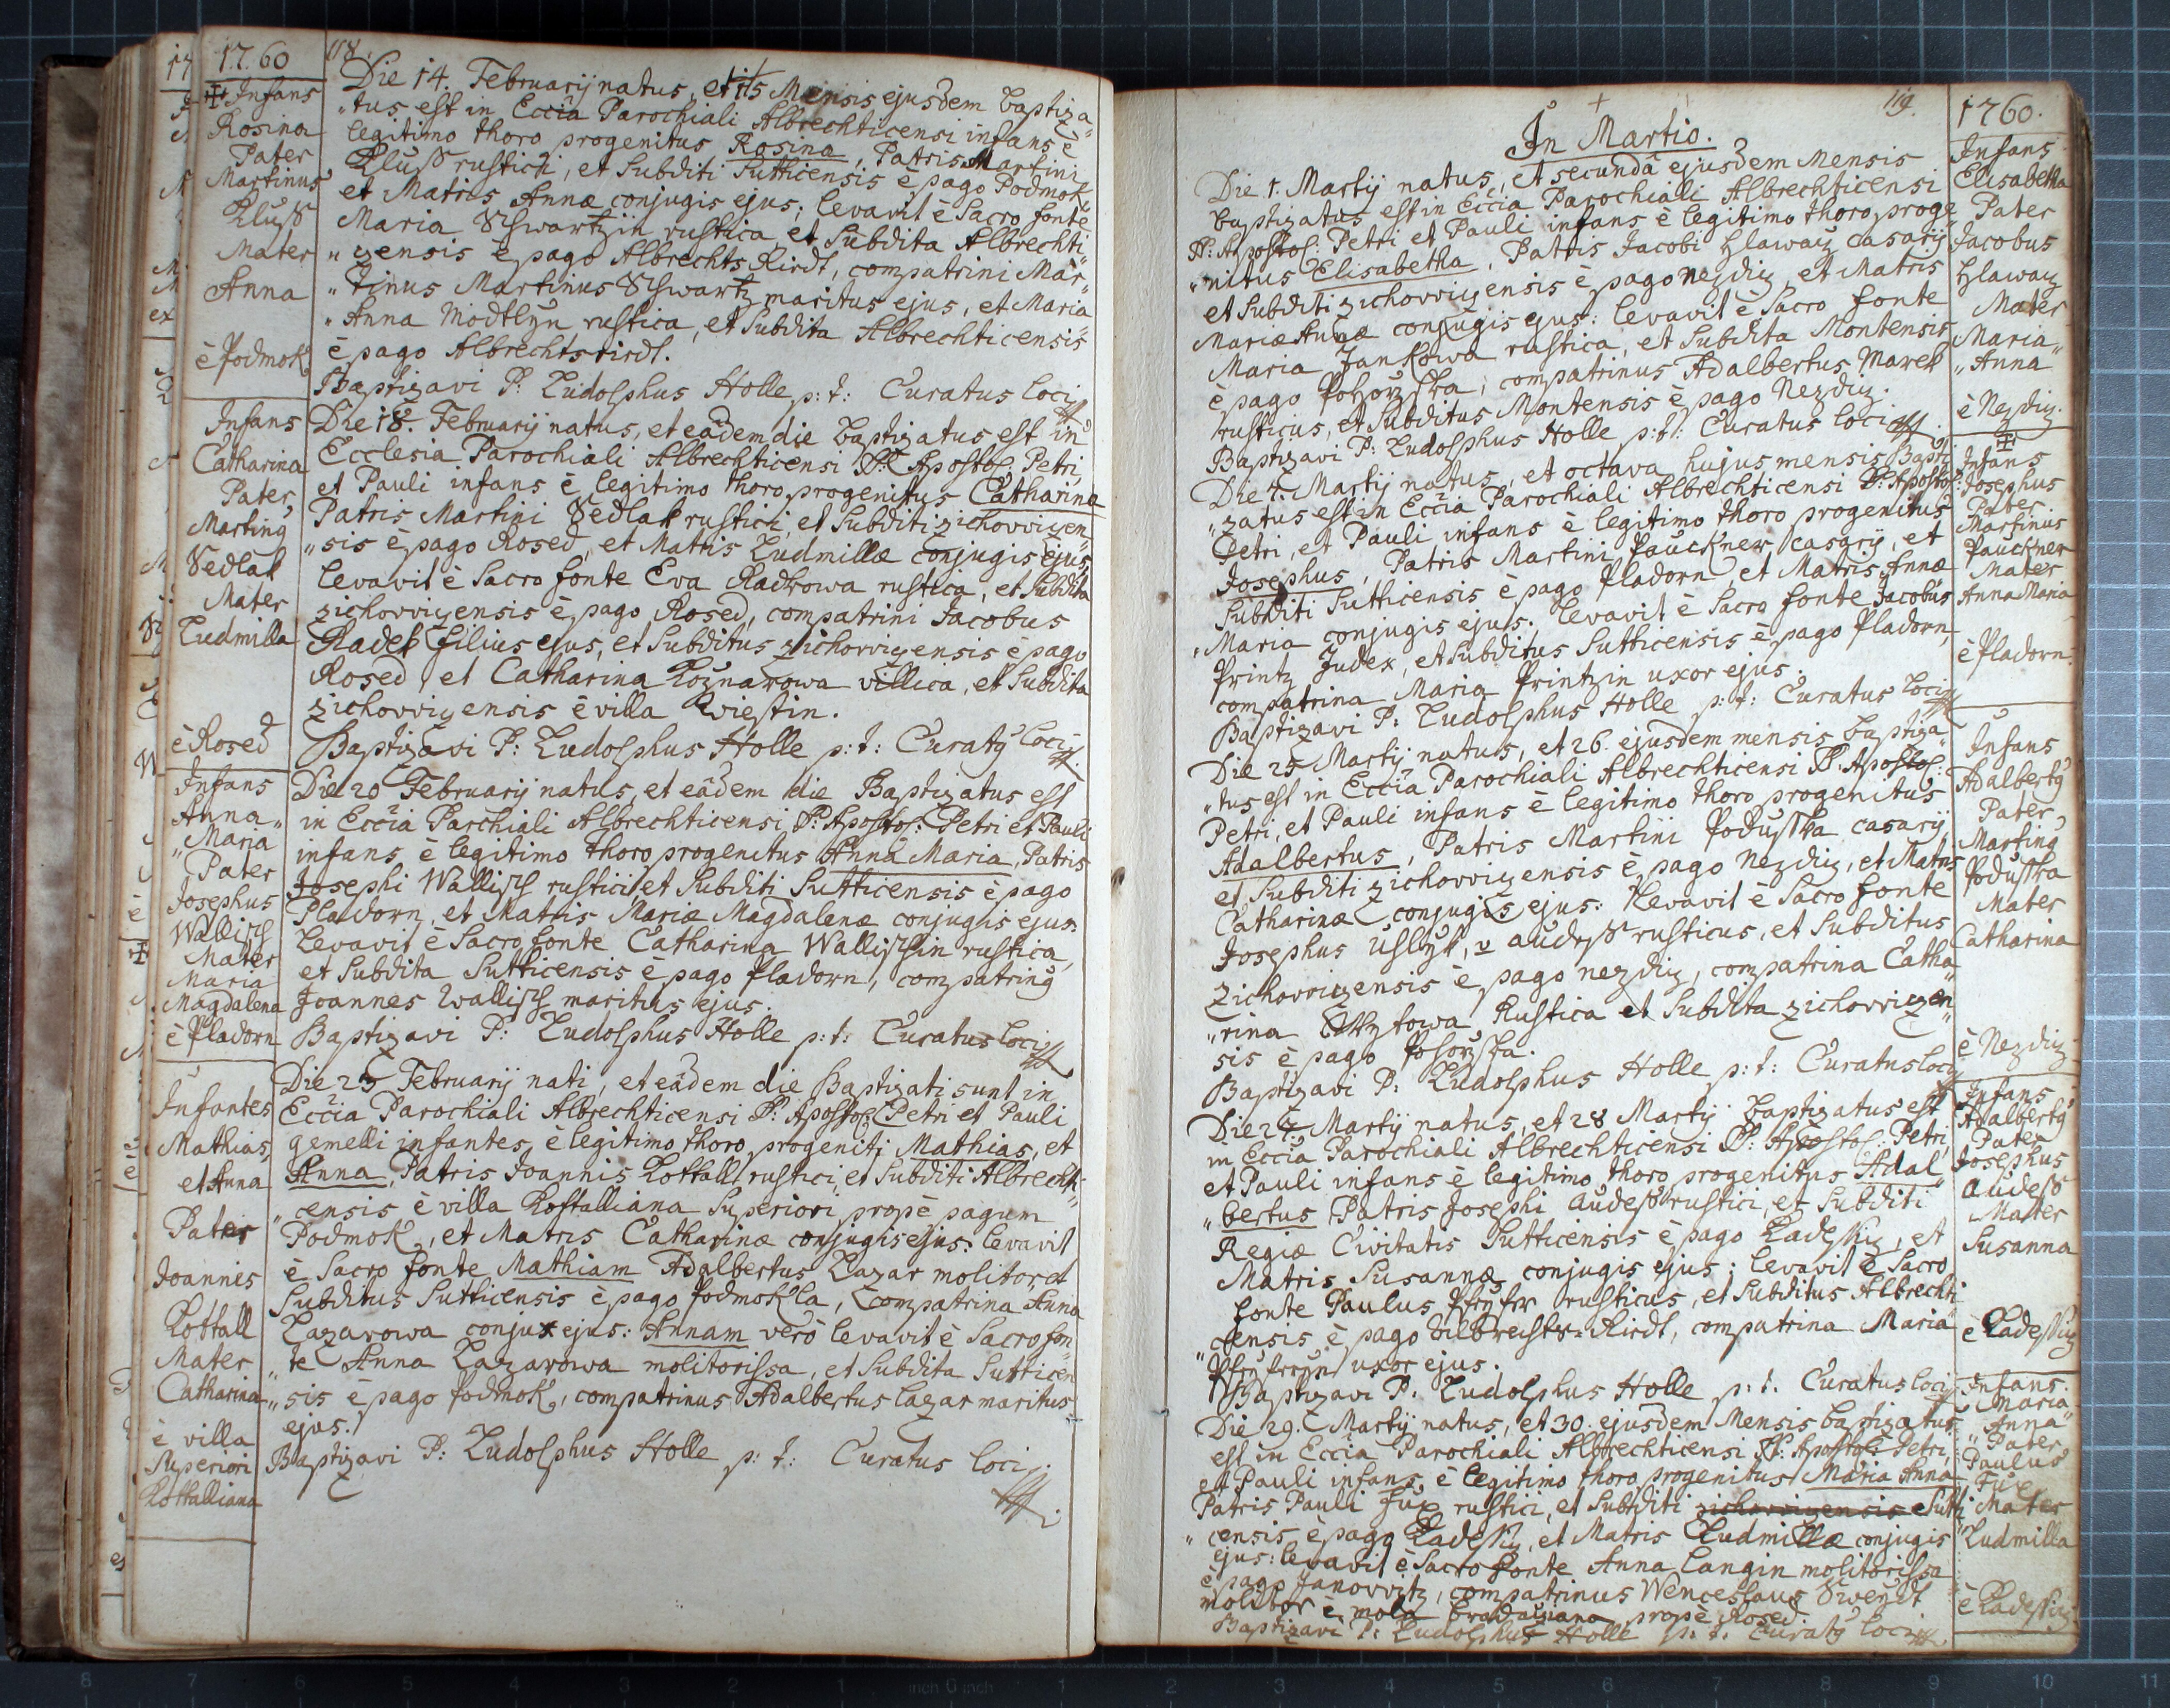 1760
118.
✠ Infans
Rosina
Pater
Martinus
Kluß
Mater
Anna
è Podmok
Die 14. Februarij natus, et 15 Mensis ejusdem baptiza„
„tus est in Eccia Parochiali Albrechticensi infans è
legitimo thoro progenitus Rosina, Patris Martini
Kluß rustici, et Subditi Sutticensis è pago Podmok
et Matris Annæ conjugis ejus; levavit è Sacro fonte
Maria Schwartzin rustica, et Subdita Albrechti„
„zensis è pago Albrechts Rirdt, compatrini Mar„
„tinus Martinus Schwartz maritus ejus, et Maria
„Anna Modtlyn rustica, et Subdita Albrechticensis
è pago Albrechtsrirdt.
Baptizavi P: Ludolphus Holle p: t: Curatus loci
Infans
Catharina
Pater
Marting
Sedlak
Mater
Ludmilla
è Rosed
Die 18. Februarij natus, et eâdem die baptizatus est in
Ecclesia Parochiali Albrechticensi SS: Apostol: Petri,
et Pauli infans è legitimo thoro progenitus Catharina
Patris Martini Sedlak rustici, et Subditi zichovvizen„
„sis è pago Rosed, et Matris Ludmillæ conjugis ejus,
levavit è Sacro fonte Eva Radkowa rustica, et Subdita
zichovvizensis è pago Rosed, compatrini Jacobus
Radek filius ejus, et Subditus zichovvizensis è pago
Rosed, et Catharina Koznarowa villica, et Subdita
zichovvizensis è villa Kwiestin.
Baptizavi P: Ludolphus Holle p: t: Curatg loci
Infans
Anna„
„Maria
Pater
Josephus
Wallisch
Mater
Maria
Magdalena
è Pladorn
Die 20 Februarij natus, et eâdem die Baptizatus est
in Eccia Parchiali Albrechticensi SS: Apostol: Petri et Pauli
infans è legitimo thoro progenitus Anna Maria, Patris
Josephi Wallisch rustici et Subditi Sutticensis è pago
Pladorn, et Matris Mariæ Magdalenæ conjugis ejus.
Levavit è Sacro fonte Catharina Wallischin rustica,
et Subdita Sutticensis è pago Pladorn, compatring
Joannes Wallisch maritus ejus.
Baptizavi P: Ludolphus Holle p: t: Curatus loci
Infantes
Mathias,
et Anna
Pater
Joannes
Kottall
Mater
Catharina
è villa
Superiori
Kottalliana
Die 25 Februarij nati, et eâdem die Baptizati sunt in
Eccia Parochiali Albrechticensi SS: Apostol: Petri et Pauli
gemelli infantes, è legitimo thoro progeniti Mathias, et
Anna, Patris Joannis Kottall rustici, et Subditi Albrechti„
„censis è villa Kottalliana Superiori propè pagum
Podmok, et Matris Catharinæ conjugis ejus: levavit
è Sacro fonte Mathiam Adalbertus Lazar molitor et
Subditus Sutticensis è pago Podmokla, compatrina Anna
Lazarowa conjux ejus: Annam verò levavit è Sacro fon„
„te Anna Lazarowa molitorissa, et Subdita Sutticen
„sis è pago Podmok, compatrinus Adalbertus Lazar maritus
ejus.
Baptizavi P: Ludolphus Holle p: t: Curatus loci
119.
1760.
In Martio.
Die 1. Martij natus, et secundâ ejusdem Mensis
baptizatus est in Eccia Parochiali Albrechticensi
SS: Apostol: Petri et Pauli infans è legitimo thoro proge„
„nitus Elisabetha, Patris Jacobi Hlawacz casarij
et Subditi zichovvizensis è pago nezdiz, et Matris
Mariæ Annæ conjugis ejus: levavit è Sacro fonte
Maria Jankowa rustica, et Subdita Montensis
è pago Pohorzska, compatrinus Adalbertus Marek
rusticus, et Subditus Montensis è pago Nezdiz.
Baptizavi P: Ludolphus Holle p: t: Curatus loci
Infans
Elisabetha
Pater
Jacobus
Hlawacz
Mater
Maria„
„Anna
è Nezdiz.
Die 7. Martij natus, et octava hujus mensis Bapti
„zatus est in Eccia Parochiali Albrechticensi SS: Apostol:
Petri, et Pauli infans è legitimo thoro progenitus
Josephus, Patris Martini Pauckner casarij, et
Subditi Sutticensis è pago Pladorn, et Matris Annæ
„Maria conjugis ejus: levavit è Sacro fonte Jacobus
Printz Judex, et Subditus Sutticensis è pago Pladorn,
compatrina Maria Printzin uxor ejus.
Baptizavi P: Ludolphus Holle p: t: Curatus loci
✠
Infans
Josephus
Pater
Martinus
Pauckner
Mater
Anna Maria
è Pladorn
Die 25 Martij natus, et 26. ejusdem mensis baptiza„
„tus est in Eccia Parochiali Albrechticensi SS. Apostol:
Petri, et Pauli infans è legitimo thoro progenitus
Adalbertus, Patris Martini Poduska casarij,
et Subditi zichovvizensis è pago Nezdiz, et Matris
Catharinæ conjugis ejus: Levavit è Sacro fonte
Josephus auderß rusticus, et Subditus
zichovvizensis è pago nezdiz, compatrina Catha„
„rina rustica et Subdita zichovvizen„
sis è pago Pohorzska.
Baptizavi P: Ludolphus Holle p: t: Curatus loci
Infans
Adalbertg
Pater
Marting
Poduska
Mater
Catharina
è Nezdiz
Die 27 Martij natus, et 28 Martij baptizatus est
in Eccia Parochiali Albrechticensi SS: Apostol: Petri,
et Pauli infans è legitimo thoro progenitus Adal„
„bertus Patris Josephi Audeß rustici, et Subditi
Regiæ Civitatis Sutticensis è pago Kadeskiz, et
Matris Susannæ conjugis ejus: levavit è Sacro
fonte Paulus rusticus, et Subditus Albrechti
„censis è pago Albrechts-Rirdt, compatrina Maria
uxor ejus.
Baptizavi P: Ludolphus Holle p: t. Curatus loci
Infans
Adalbertg
Pater
Josephus
Audeß
Mater
Susanna
è Kadeskiz
Die 29. Martij natus, et 30. ejusdem Mensis baptizatus
est in Eccia Parochiali Albrechticensi SS: Apostol: Petri,
et Pauli infans è legitimo thoro progenitus Maria Anna
Patris Pauli Fux rustici, et Subditi zichovvizensis Sutti
„censis è pago Kadeskiz, et Matris Ludmillæ conjugis
ejus: levavit è Sacro fonte Anna Langin molitorissa
è pago Janovvitz, compatrinus Wenceslaus Sweydt
molitor è mola propè Rosed.
Baptizavi P: Ludolphus Holle p: t. Curatg loci
Infans
Maria
Anna
Pater
Paulus
Fux
Mater
Ludmilla
è Kadeskiz